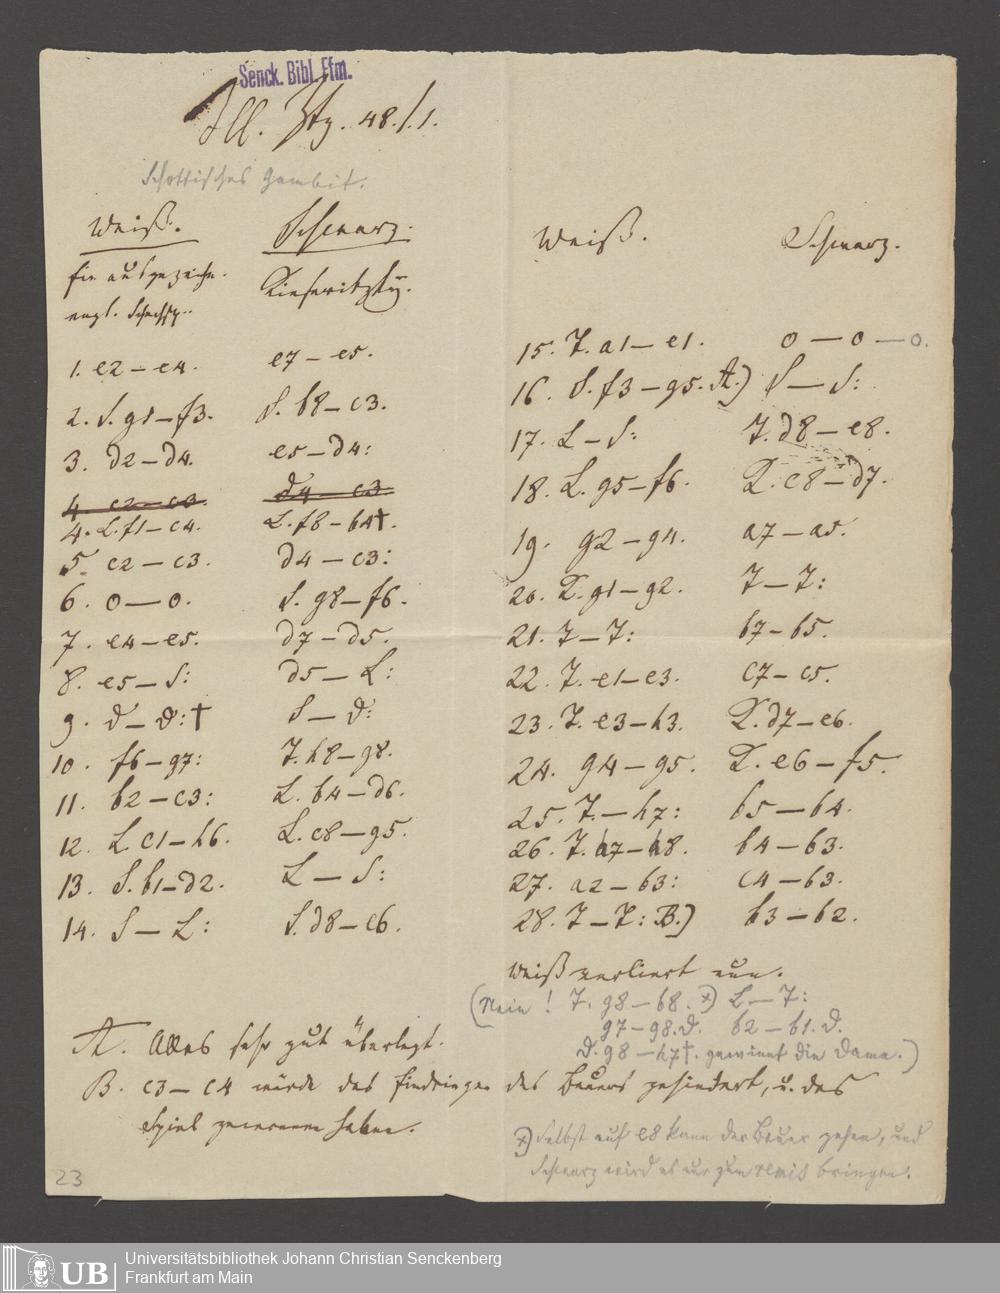 Senck. Bibl. Ffm.
Ill. Ztg. 48./.1.
Schottisches Gambit.
Weiß. Schwarz.
Ein ausgezeichn. Kieseritzky.
engl. Schachsp.
1. e2 — e4. e7 — e5.
2. S. g1 — f3. S. b8 — c3.
3. d2 — d4. e5 — d4:
4 c2 — c3. d4 — c3
4. L. f1 — c4. L. f8 — b4†.
5 c2 — c3. d4 — c3:
6. o — o. S. g8 — f6.
7. e4 — e5. d7 — d5.
8. e5 — S: d5 — L:
9. D — D:† S — D:
10. f6 — g7: T. h8 — g8.
11. b2 — c3: L. b4 — d6.
12. L c1 — h6. L. c8 — g5.
13. S. b1 — d2. L — S:
14. S — L: S. d8 — c6.
A. Alles sehr gut überlegt.
B. c3 — c4 würde das Eindringen des Bauers gehindert, u. das
Spiel gewonnen haben.
23
Weiß. Schwarz.
15. T. a1 — e1. o — o — o.
16. S. f3 — g5. A.) S — S:
17. L — S: T. d8 — e8.
18. L. g5 — f6. K. c8 — d7.
19. g2 — g4. a7 — a5.
20. K. g1 — g2. T — T:
21. T — T: b7 — b5.
22. T. e1 — e3. c7 — c5.
23. T. e3 — h3. K. d7 — e6.
24. g4 — g5. K. e6 — f5.
25. T. — h7: b5 — b4.
26. T. h7 — h8. b4 — b3.
27. a2 — b3: c4 — b3.
28. T — T: B.) b3 — b2.
Weiß verliert nun.
(Nein! T. g8 — b8. x) L — T:
g7 — g8. D. b2 — b1. D.
D. g8 — h7†. gewinnt die Dame.)
x) Selbst auf e8 kann der Bauer gehen, und
Schwarz wird es nur zum remis bringen.
Universitätsbibliothek Johann Christian Senckenberg
Frankfurt am Main
UB